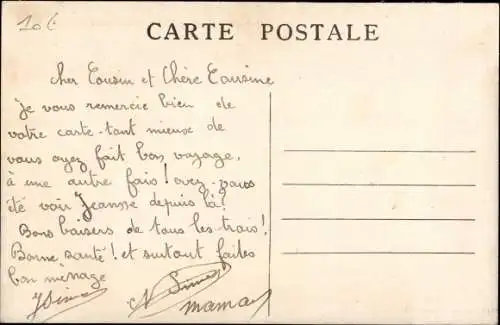 10 €
CARTE POSTALE
cher Cousin et Chère Cousine
Je vous remercie bien de
votre carte. tant mieuse de
vous ayez fait bon voyage,
à une autre fais! avez-vous
été voir Jeansse depuis là?
Bons baisers de tous les trois!
Bonne santé! et surtout faites
bon mènage
maman